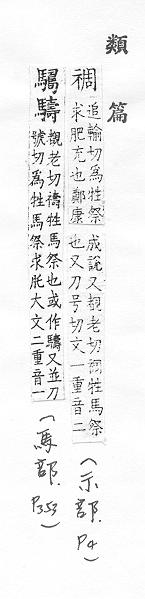 類篇
禂
追輸切為牲祭
求肥充也鄭康
成說又覩老切禂牲馬祭
也又刀号切文一重音二
(示部. P4)
覩老切禱牲馬祭也或作又並刀
號切為牲馬祭求肥大文二重音一
(馬部. P353)